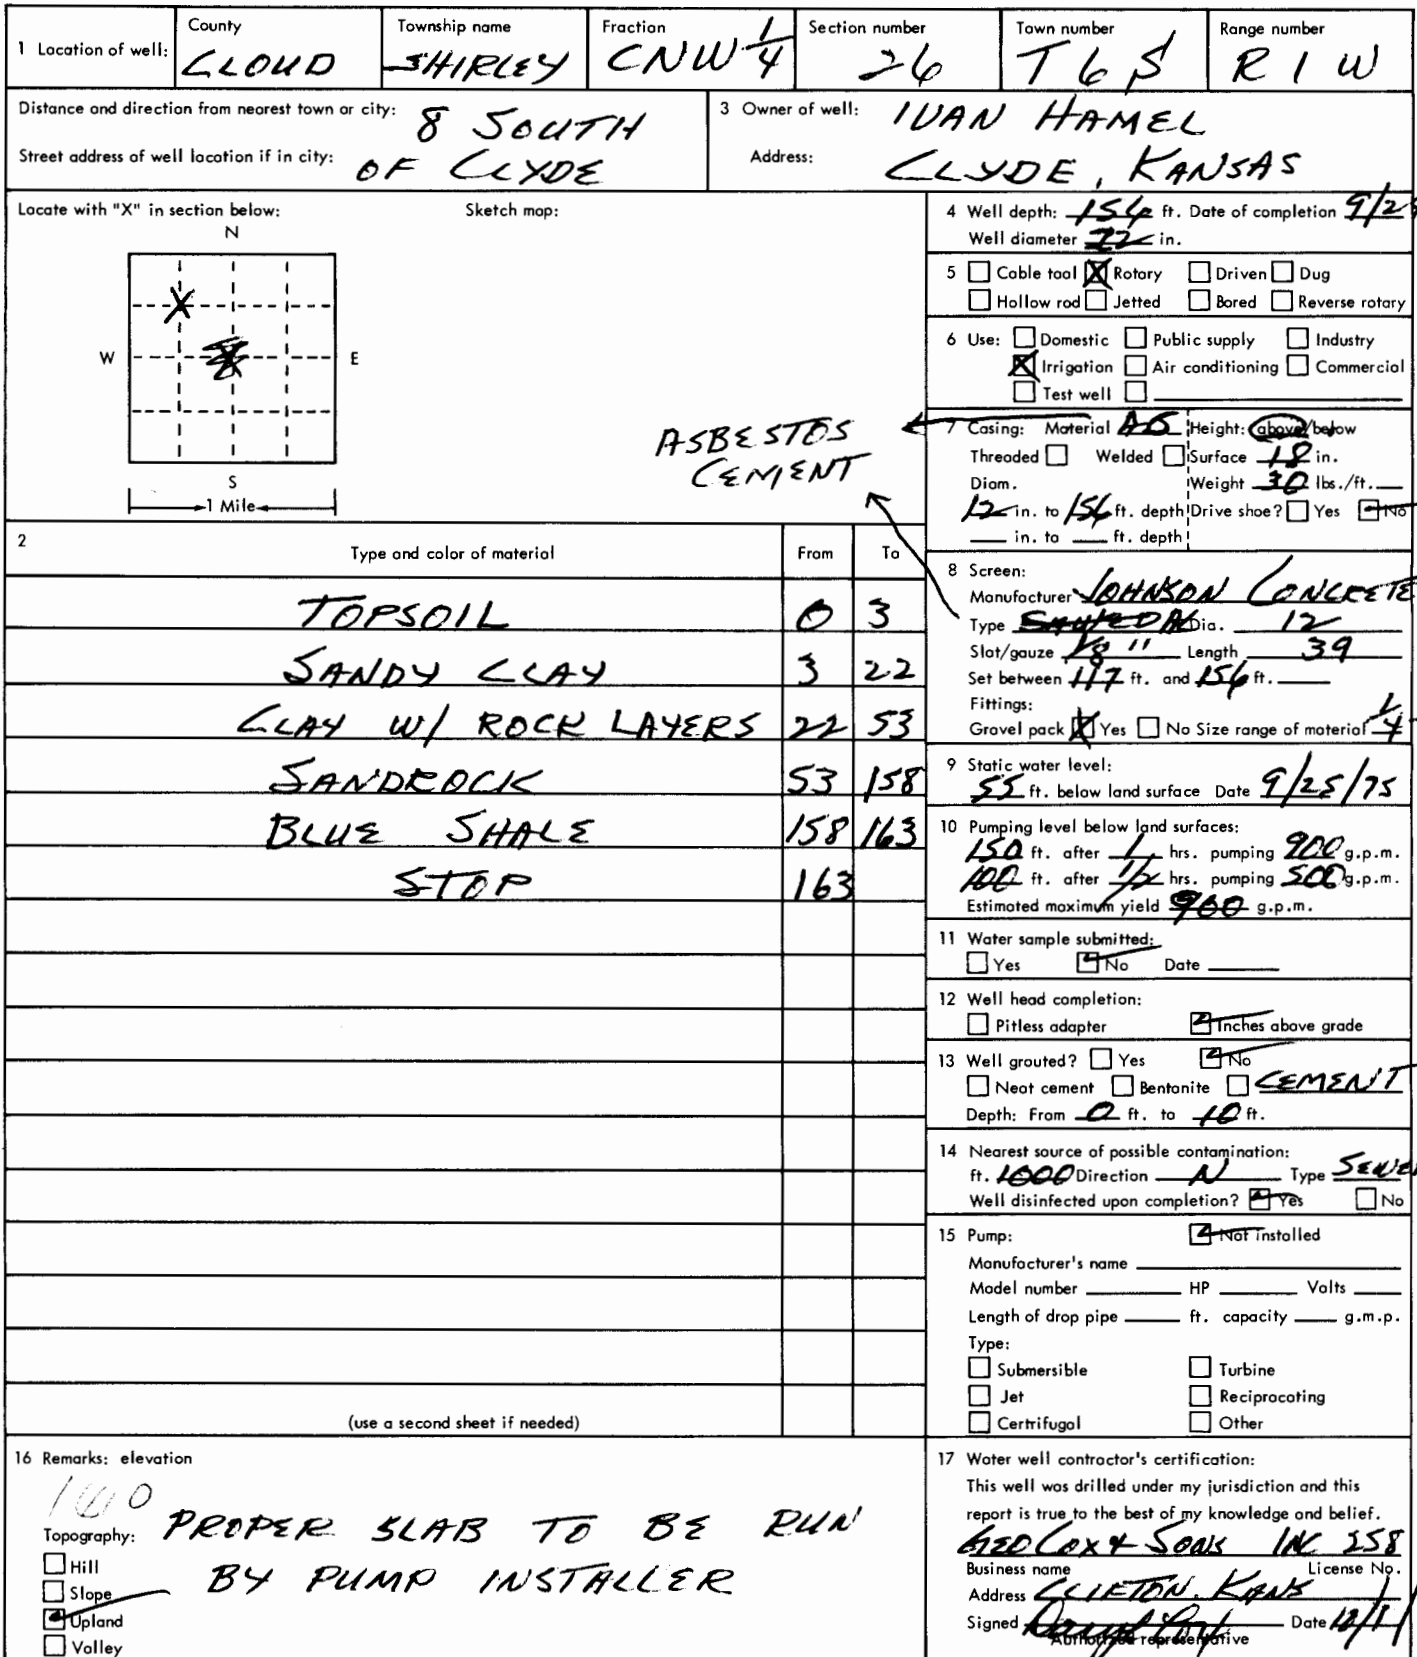 1 Location of well: County CLOUD Township name SHIRLEY Fraction CNW 1/4 Section number 26 Town number T 6 S Range number R 1 W
Distance and direction from nearest town or city: 8 SOUTH
Street address of well location if in city: OF CLYDE
3 Owner of well: IVAN HAMEL
Address: CLYDE, KANSAS
Locate with "X" in section below: Sketch map:
N
X
W E
S
1 Mile
ASBESTOS
CEMENT
2 Type and color of material From To
TOPSOIL 0 3
SANDY CLAY 3 22
CLAY W/ ROCK LAYERS 22 53
SANDROCK 53 158
BLUE SHALE 158 163
STOP 163
(use a second sheet if needed)
4 Well depth: 156 ft. Date of completion 9/2
Well diameter 22 in.
5 Cable tool X Rotary Driven Dug
Hollow rod Jetted Bored Reverse rotary
6 Use: Domestic Public supply Industry
X Irrigation Air conditioning Commercial
Test well
7 Casing: Material Height: above/below
Threaded Welded Surface 18 in.
Diam. Weight 30 lbs./ft.
12 in. to 156 ft. depth Drive shoe? Yes No
in. to ft. depth
8 Screen:
Manufacturer JOHNSON CONCRETE
Type Dia. 12
Slot/gauze 1/8 " Length 39
Set between 117 ft. and 156 ft.
Fittings:
Gravel pack X Yes No Size range of material 1/4
9 Static water level:
55 ft. below land surface Date 9/25/75
10 Pumping level below land surfaces:
150 ft. after 1 hrs. pumping 900 g.p.m.
100 ft. after 1/2 hrs. pumping 500 g.p.m.
Estimated maximum yield 900 g.p.m.
11 Water sample submitted:
Yes No Date
12 Well head completion:
Pitless adapter Inches above grade
13 Well grouted? Yes No
Neat cement Bentonite CEMENT
Depth: From 0 ft. to 10 ft.
14 Nearest source of possible contamination:
ft. 1000 Direction N Type SEWE
Well disinfected upon completion? Yes No
15 Pump: Not installed
Manufacturer's name
Model number HP Volts
Length of drop pipe ft. capacity g.m.p.
Type:
Submersible Turbine
Jet Reciprocating
Certrifugal Other
16 Remarks: elevation
Topography: PROPER SLAB TO BE RUN
BY PUMP INSTALLER
Hill
Slope
Upland
Valley
17 Water well contractor's certification:
This well was drilled under my jurisdiction and this
report is true to the best of my knowledge and belief.
GEO COX & SONS INC 258
Business name License No.
Address CLIFTON, KANS
Signed Date
Authorized representative